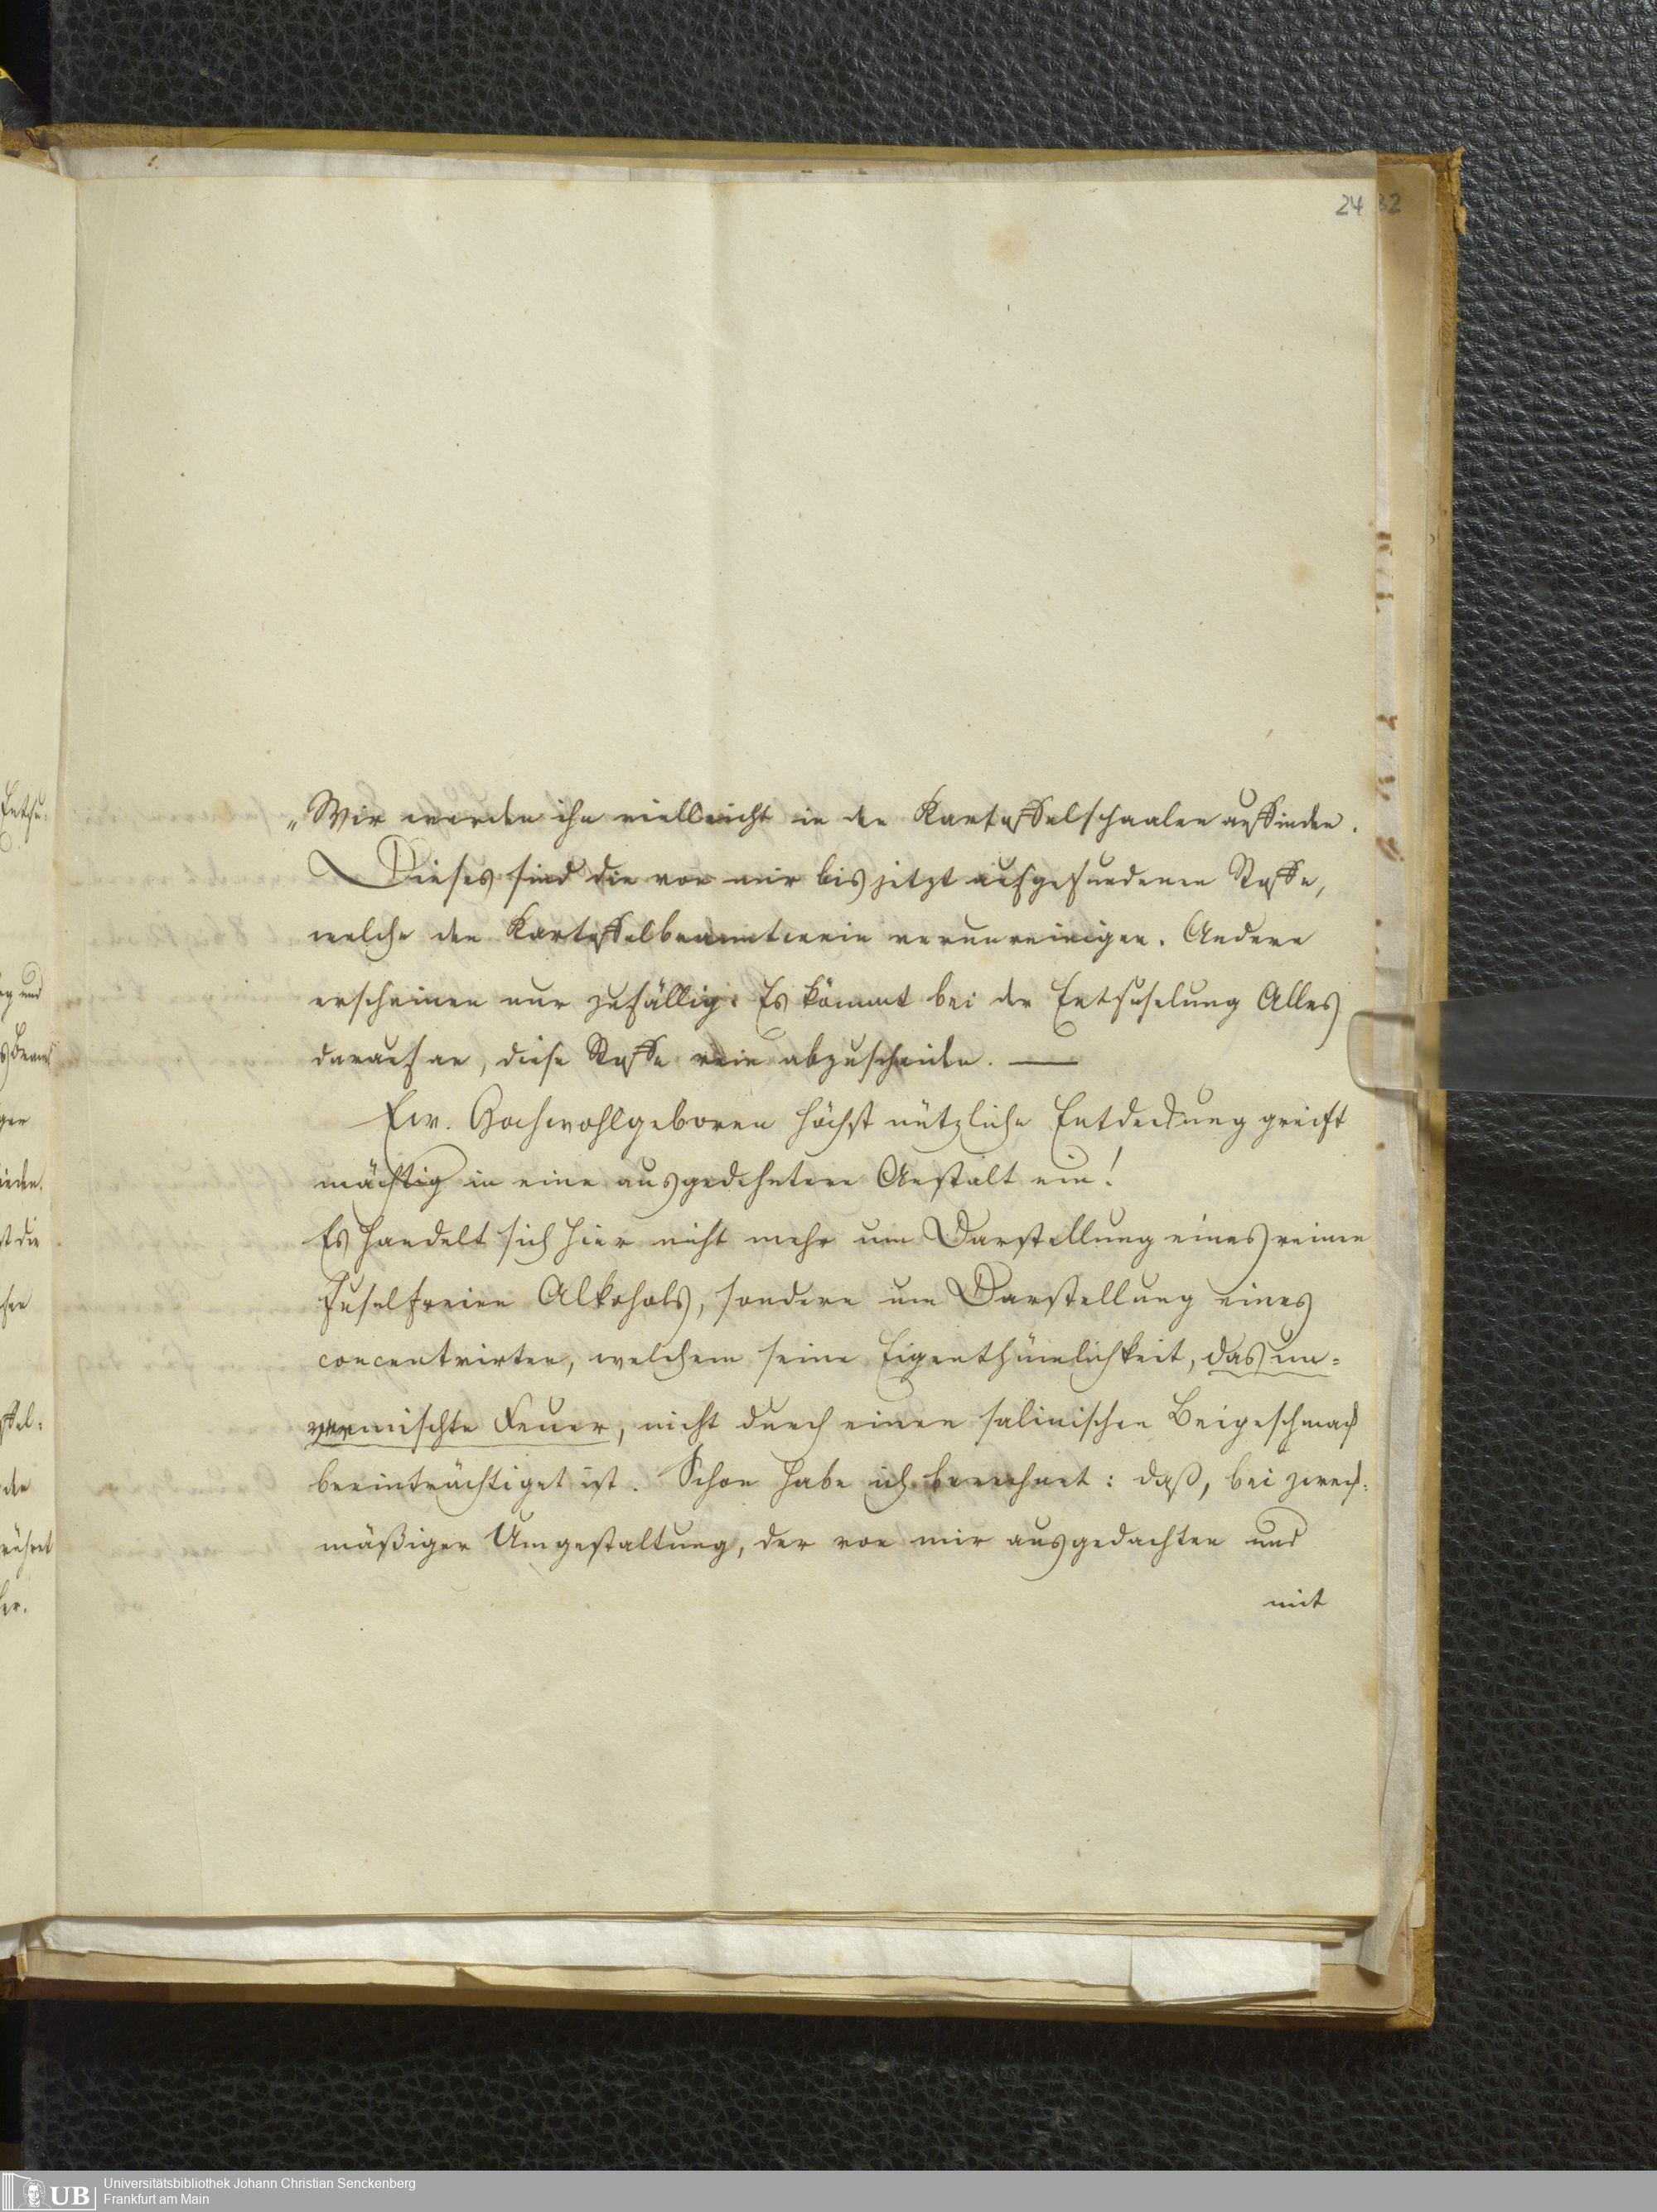 24
32
„Wir werden ihn vielleicht in den Kartoffelschaalen auffinden.
Dieses sind die von mir bis jetzt aufgefundenen Stoffe,
welche den Kartoffelbranntwein verunreinigen. Andere
erscheinen nur zufällig. Es kömmt bei der Entfuselung Alles
darauf an, diese Stoffe rein abzuscheiden. —
Ew. Hochwohlgeboren höchst nützliche Entdeckung greift
mächtig in eine ausgedehntere Anstalt ein!
Es handelt sich hier nicht mehr um Darstellung eines reinen
Fuselfreien Alkohols, sondern um Darstellung eines
concentrirten, welchem seine Eigenthümlichkeit, das un=
vermischte Feuer, nicht durch einen salinischen Beigeschmack
beeinträchtiget ist. Schon habe ich berechnet: daß, bei zweck=
mäßiger Umgestaltung, der von mir ausgedachten und
mit
UB
Universitätsbibliothek Johann Christian Senckenberg
Frankfurt am Main